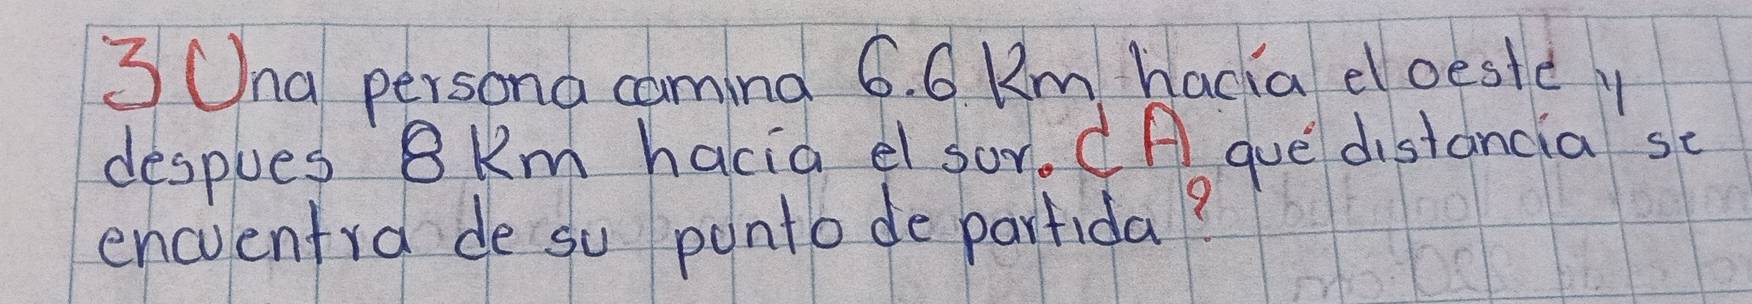 3 Una persona camina 6.6 Km hacía el oeste y
despues 8 Km hacia el sur. ¿A qué distancia se
encuentra de su punto de partida?